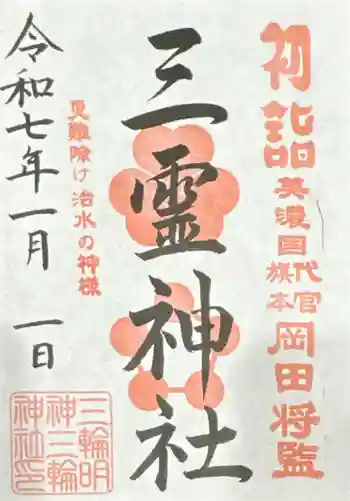 初詣
美濃国
代官
旗本
岡田将監
三霊神社
災難除け治水の神様
令和七年一月一日
三輪明
神三輪
神社印